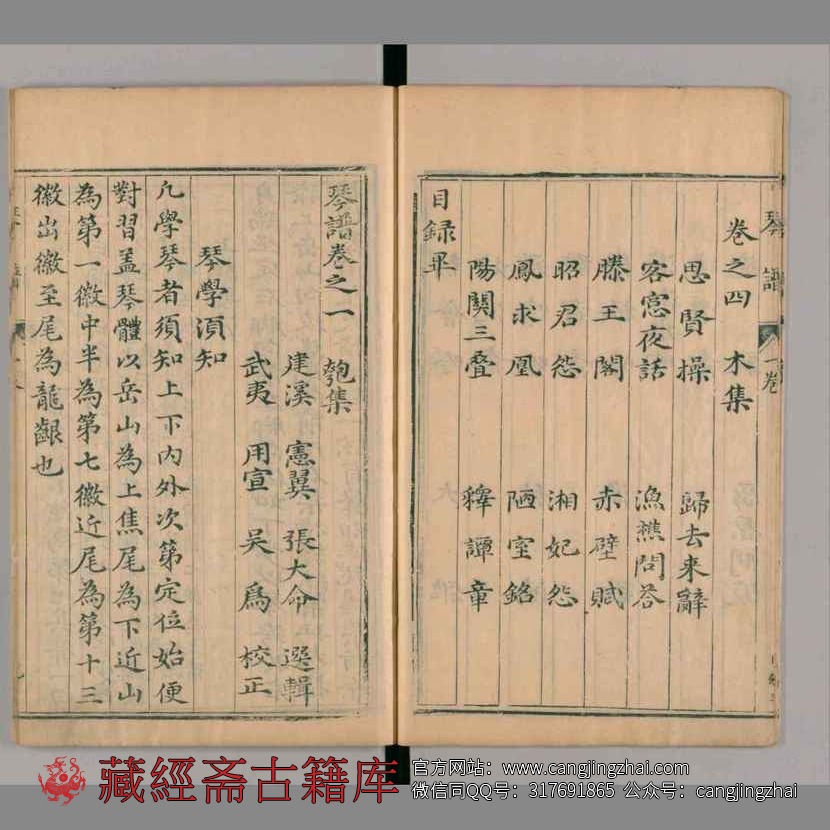 琴譜 一卷
卷之四 木集
思賢操 歸去來辭
客窓夜話 漁樵問荅
滕王閣 赤壁賦
昭君怨 湘妃怨
鳳求凰 陋室銘
陽関三叠 釋譚章
目録畢
琴譜卷之一 匏集
建溪 憲翼 張大命 選輯
武夷 用宣 吴爲 校正
琴學須知
凢學琴者須知上下內外次第定位始便
對習盖琴體以岳山為上焦尾為下近山
為第一徽中半為第七徽近尾為第十三
徽出徽至尾為龍齦也
藏經斋古籍库
官方网站：www.cangjingzhai.com
微信同QQ号：317691865 公众号：cangjingzhai